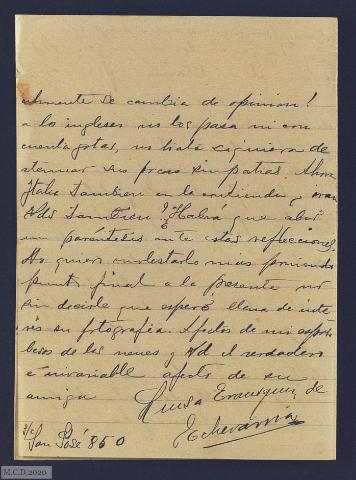 almente se cambia de opinion!
a lo ingleses no los pasa ni con
cuenta gotas, no trata siquiera de
atenuar sus pocas simpatias. Ahora
Italia tambien en la contienda y
Uds tambien? Habrá que abrir
un paréntesis ante estas reflecciones.
No quiero molestarlo mas poniendo
punto final a la presente no
sin decirle que esperó llena de inte-
rés su fotografia. Afectos de mi esposo,
besos de las nenas y Ud el verdadero
é invariable afecto de su
amiga Luisa Erausquin de
Echevarria
S/c San José 850
M.C.D. 2020